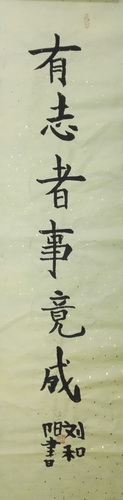 有志者事竟成
刘和
阳书